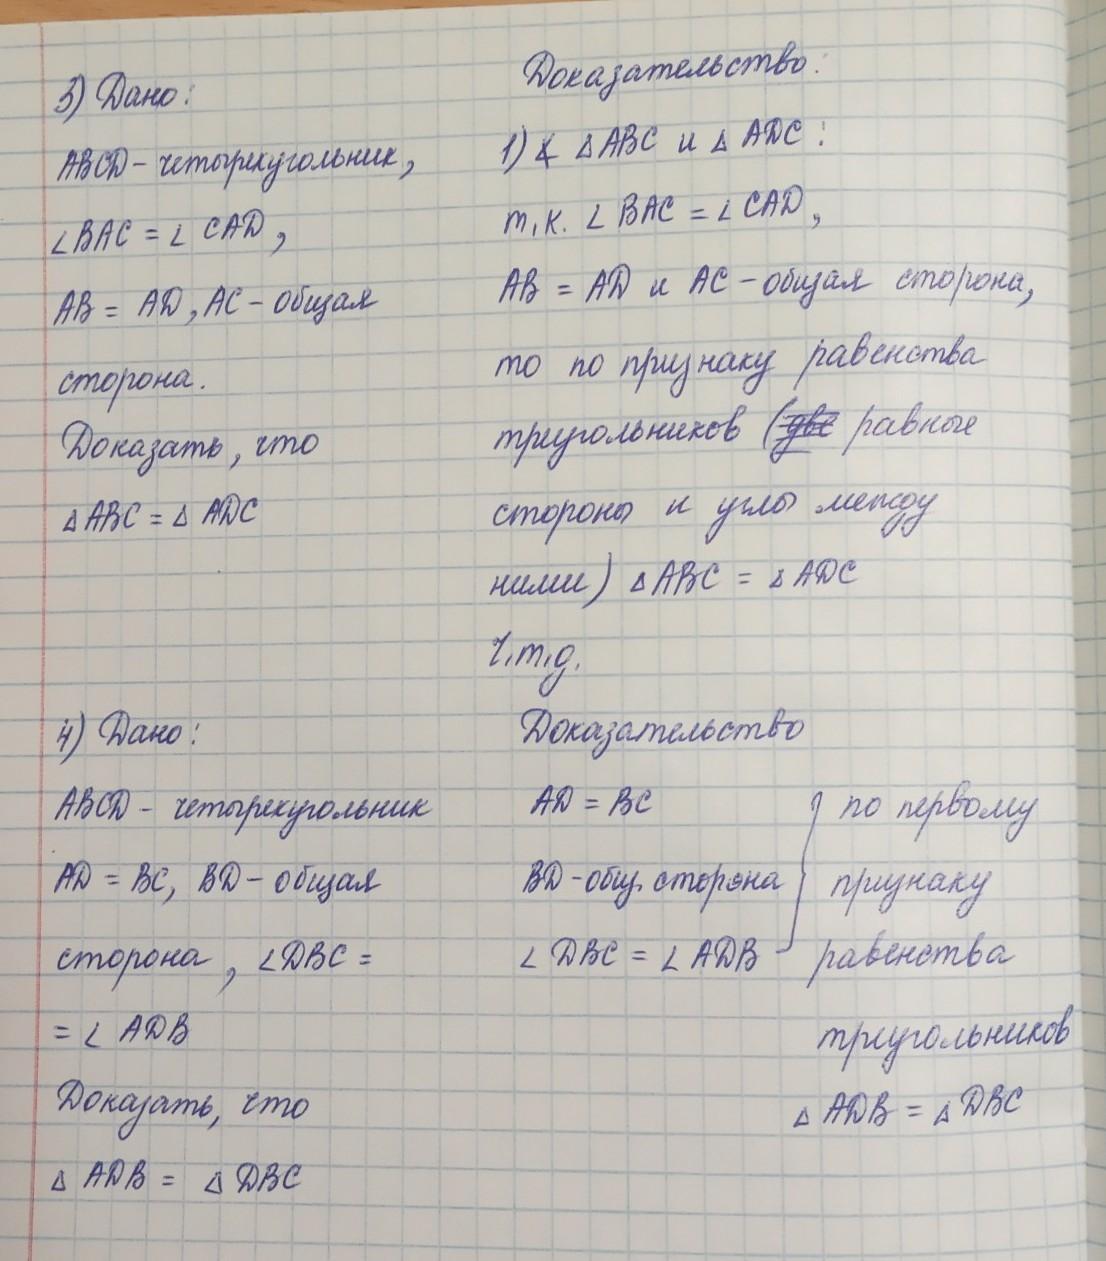 3) Дано:
ABCD - четырехугольник,
∠BAC = ∠CAD,
AB = AD, AC - общая
сторона.
Доказать, что
△ABC = △ADC
Доказательство:
1) ∢ △ABC и △ADC:
т.к. ∠BAC = ∠CAD,
AB = AD и AC - общая сторона,
то по признаку равенства
треугольников (две равные
стороны и углы между
ними) △ABC = △ADC
Ч.т.д.
4) Дано:
ABCD - четырехугольник
AD = BC, BD - общая
сторона, ∠DBC =
= ∠ADB
Доказать, что
△ADB = △DBC
Доказательство
AD = BC
BD - общ. сторона
∠DBC = ∠ADB
по первому
признаку
равенства
треугольников
△ADB = △DBC